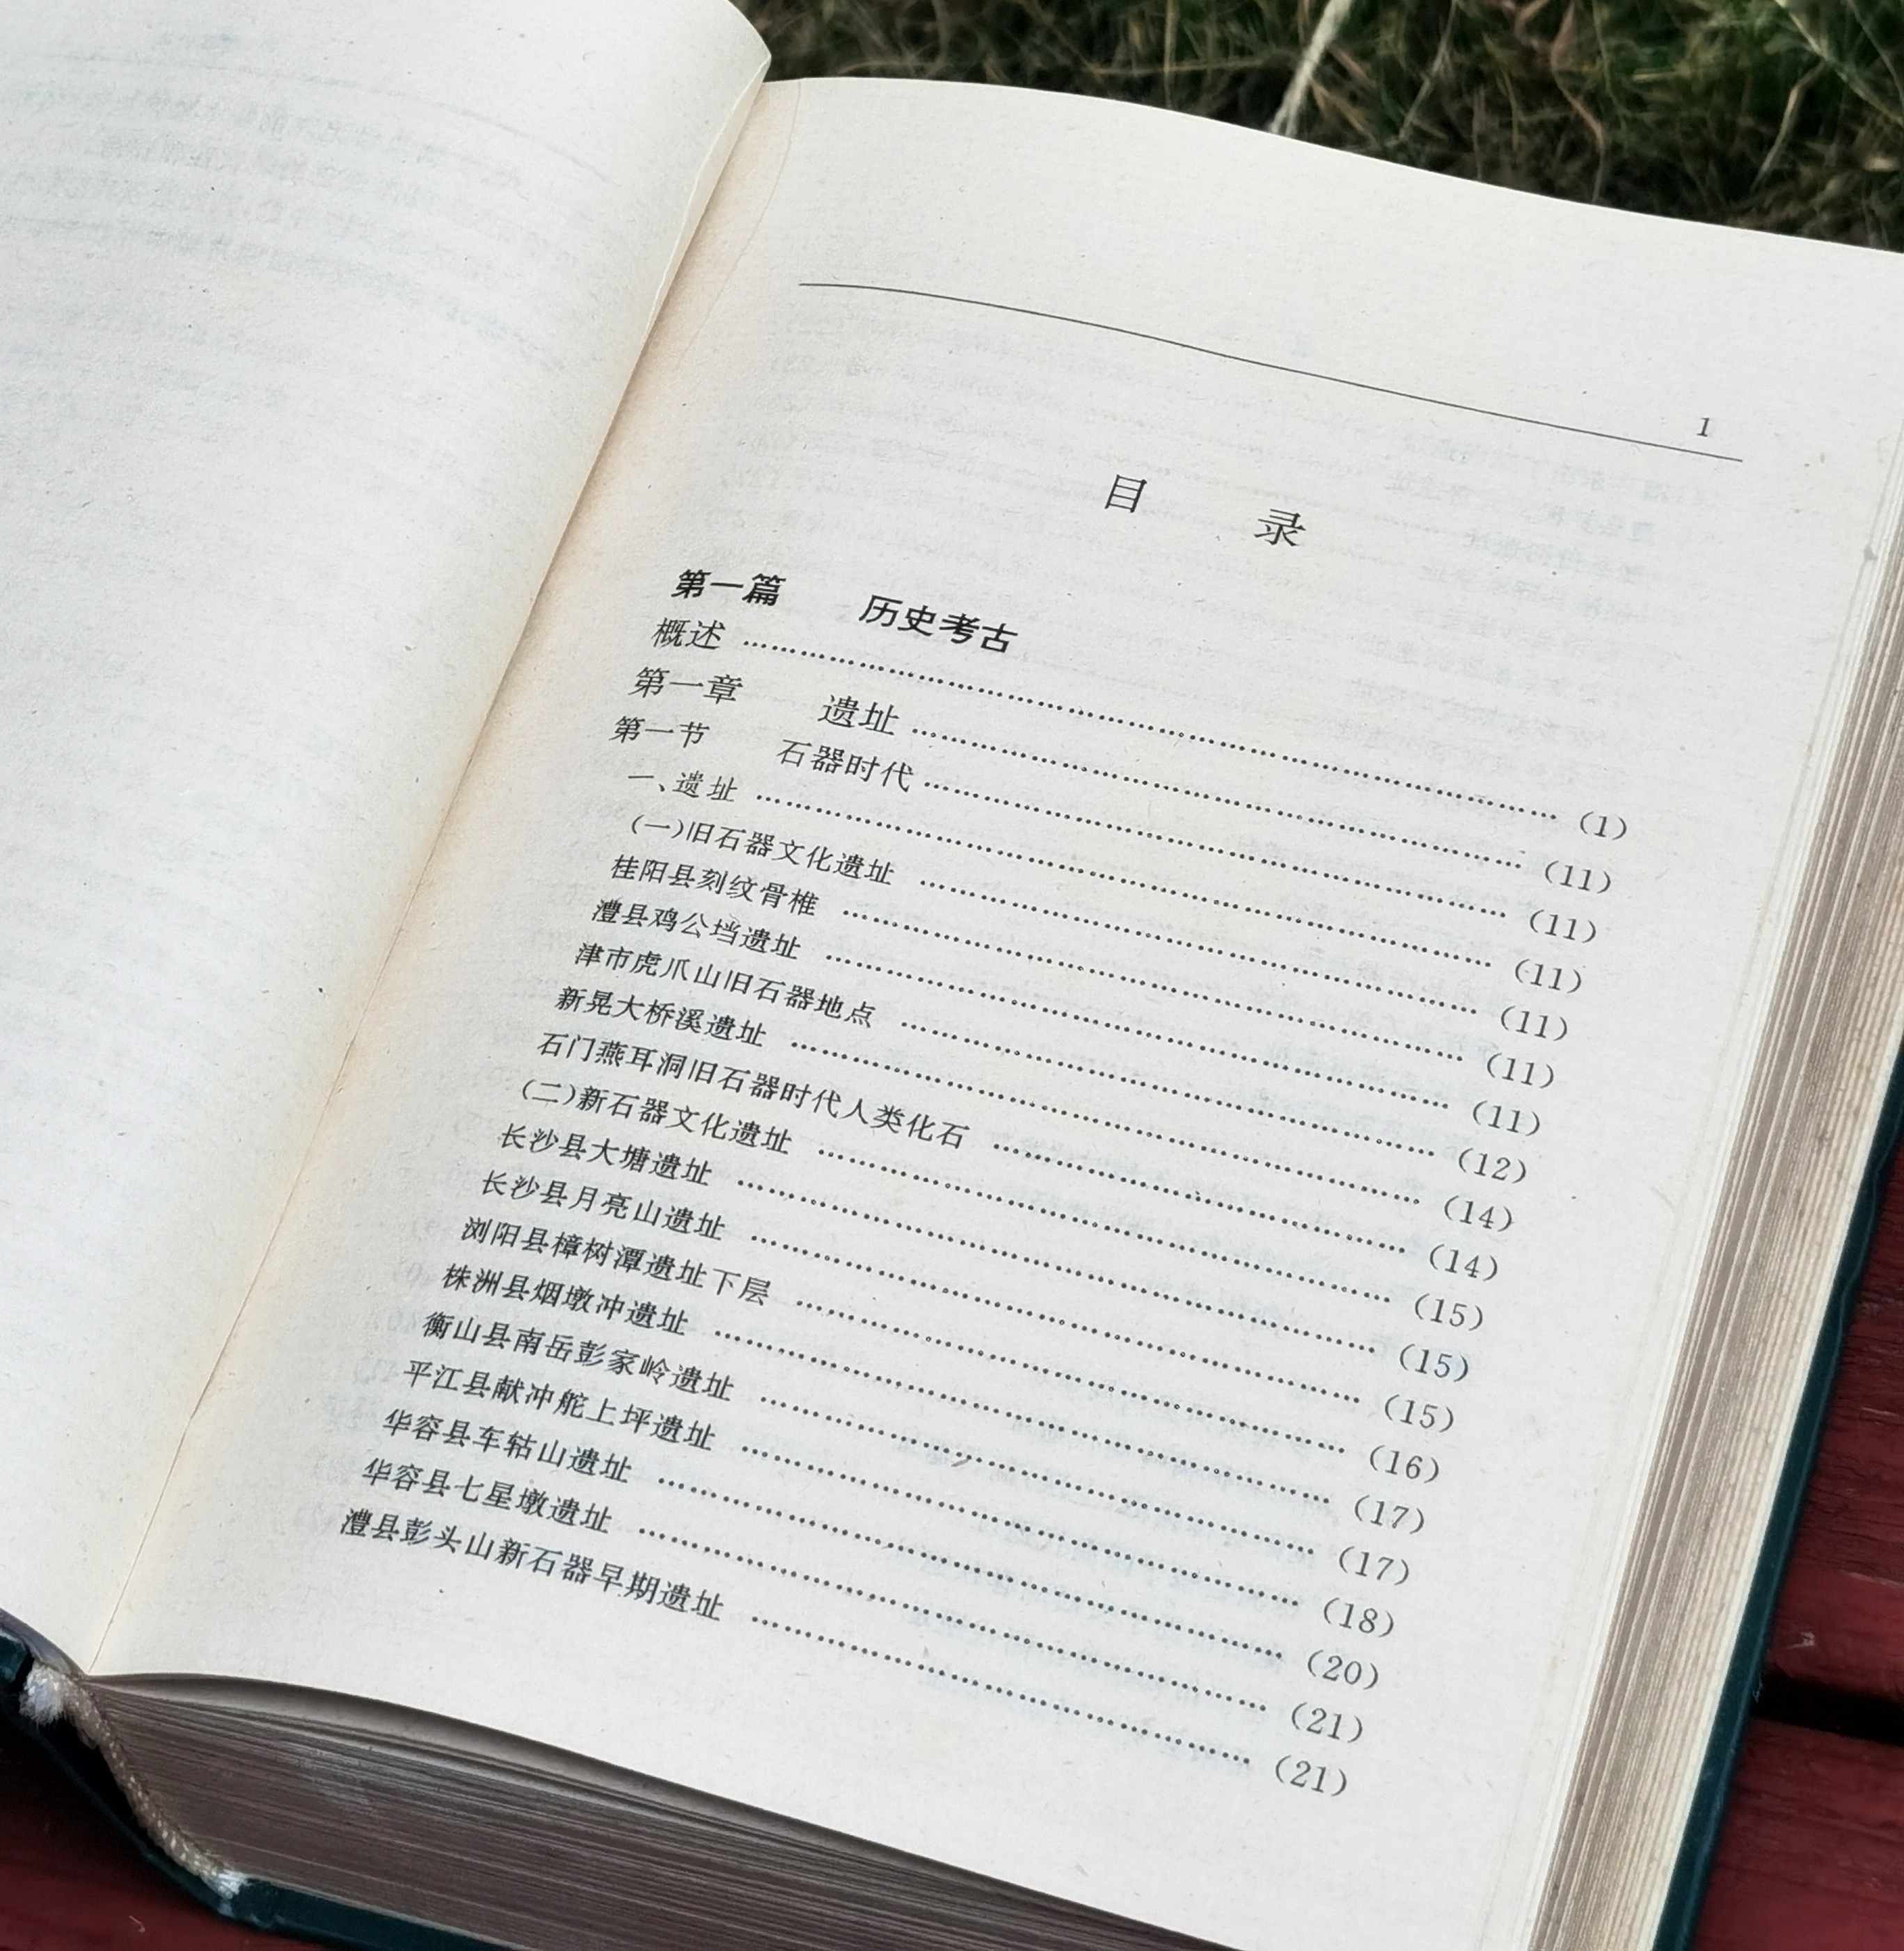 1
目 录
第一篇 历史考古
概述 ………………………………………… (1)
第一章 遗址 ………………………………………… (11)
第一节 石器时代 ………………………………………… (11)
一、遗址 ………………………………………… (11)
(一)旧石器文化遗址 ………………………………………… (11)
桂阳县刻纹骨椎 ………………………………………… (11)
澧县鸡公垱遗址 ………………………………………… (11)
津市虎爪山旧石器地点 ………………………………………… (12)
新晃大桥溪遗址 ………………………………………… (14)
石门燕耳洞旧石器时代人类化石 ………………………………………… (14)
(二)新石器文化遗址 ………………………………………… (15)
长沙县大塘遗址 ………………………………………… (15)
长沙县月亮山遗址 ………………………………………… (15)
浏阳县樟树潭遗址下层 ………………………………………… (16)
株洲县烟墩冲遗址 ………………………………………… (17)
衡山县南岳彭家岭遗址 ………………………………………… (17)
平江县献冲舵上坪遗址 ………………………………………… (18)
华容县车轱山遗址 ………………………………………… (20)
华容县七星墩遗址 ………………………………………… (21)
澧县彭头山新石器早期遗址 ………………………………………… (21)